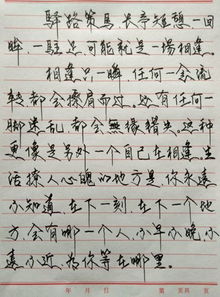 驿路策马，长亭短憩，一回
眸，一驻足，可能就是一場相逢。
相逢只一瞬，任何一念流
转都会擦肩而过。还有任何一
脚迷乱，都会無缘错失。这种
更像是另外一个自己在相逢。生
活撩人心魄的地方是，你永遠
不知道，在下一刻，在下一个地
方，会有哪一个人，不早不晚，不
遠不近，為你等在哪里。
年 月 日 第 页共 页